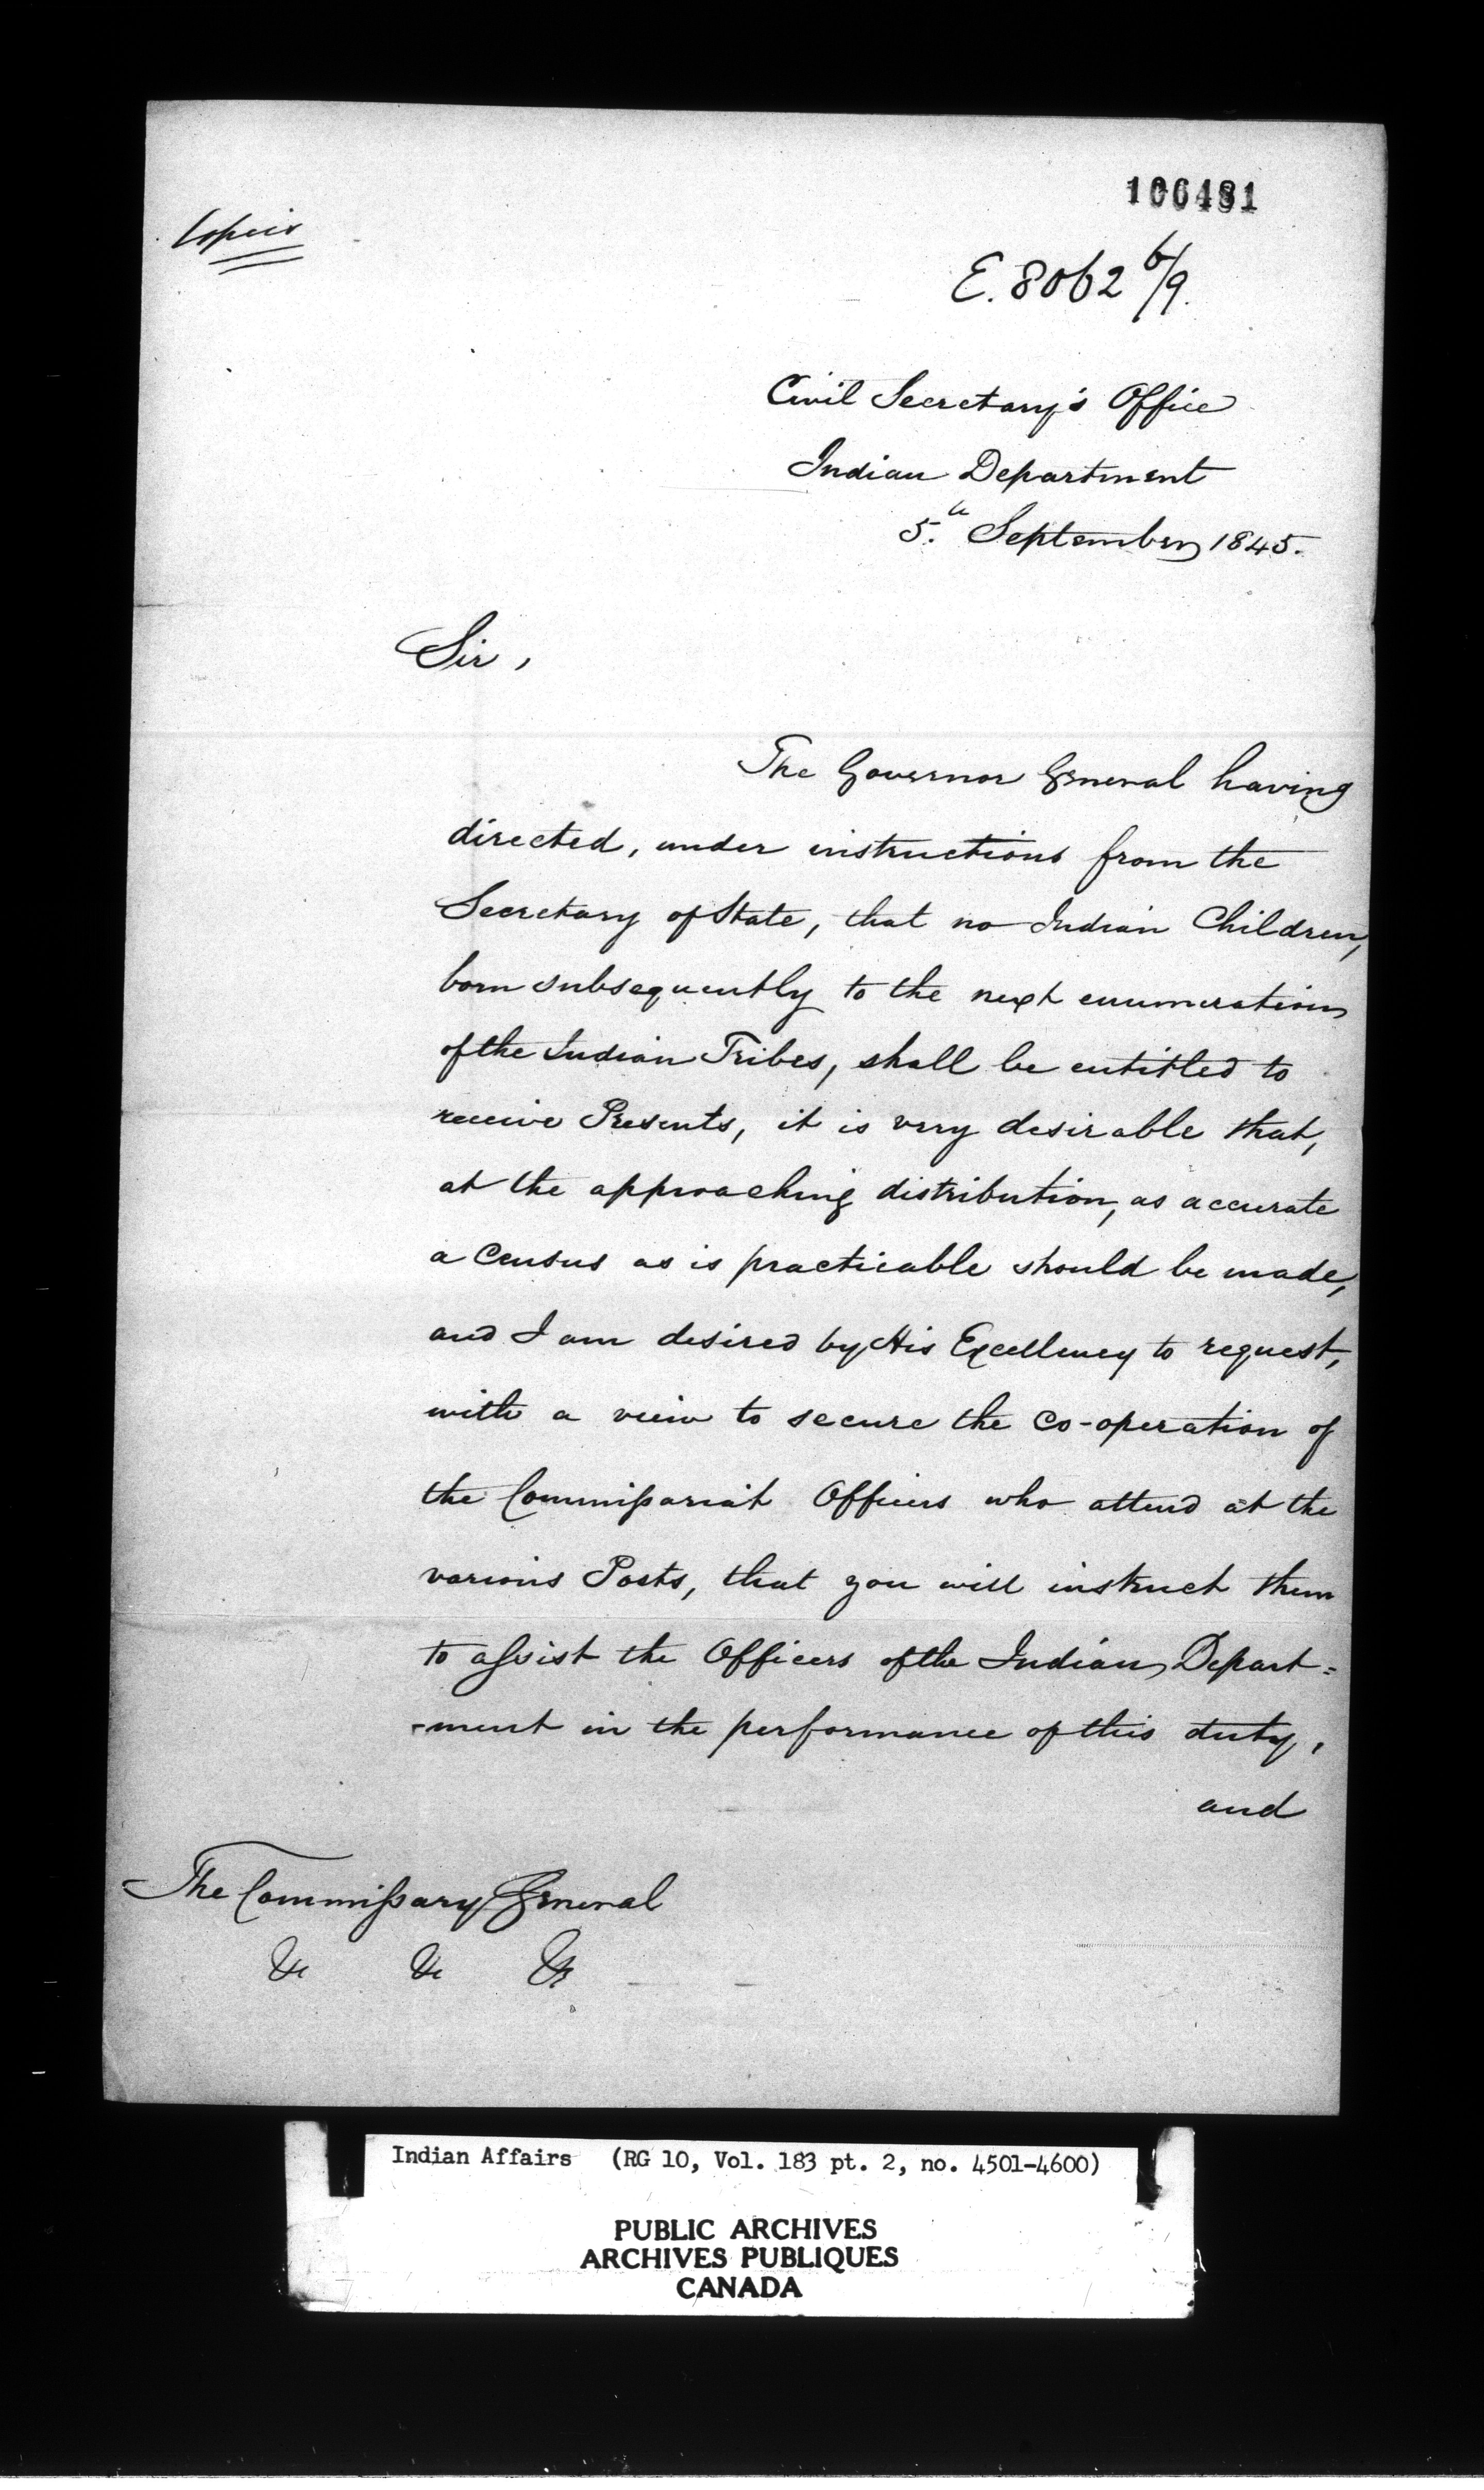 106481
Copies
E. 8062 6/9.
Civil Secretary's Office
Indian Department
5.th September 1845.
Sir,
The Governor General having
directed, under instructions from the
Secretary of State, that no Indian Children,
born subsequently to the next enumeration
of the Indian Tribes, shall be entitled to
receive Presents, it is very desirable that,
at the approaching distribution, as accurate
a Census as is practicable should be made,
and I am desired by His Excellency to request,
with a view to secure the co-operation of
the Commissariat Officers who attend at the
various Posts, that you will instruct them
to assist the Officers of the Indian Depart=
-ment in the performance of this duty,
and
The Commissary General
&c &c &c
Indian Affairs (RG 10, Vol. 183 pt. 2, no. 4501-4600)
PUBLIC ARCHIVES
ARCHIVES PUBLIQUES
CANADA